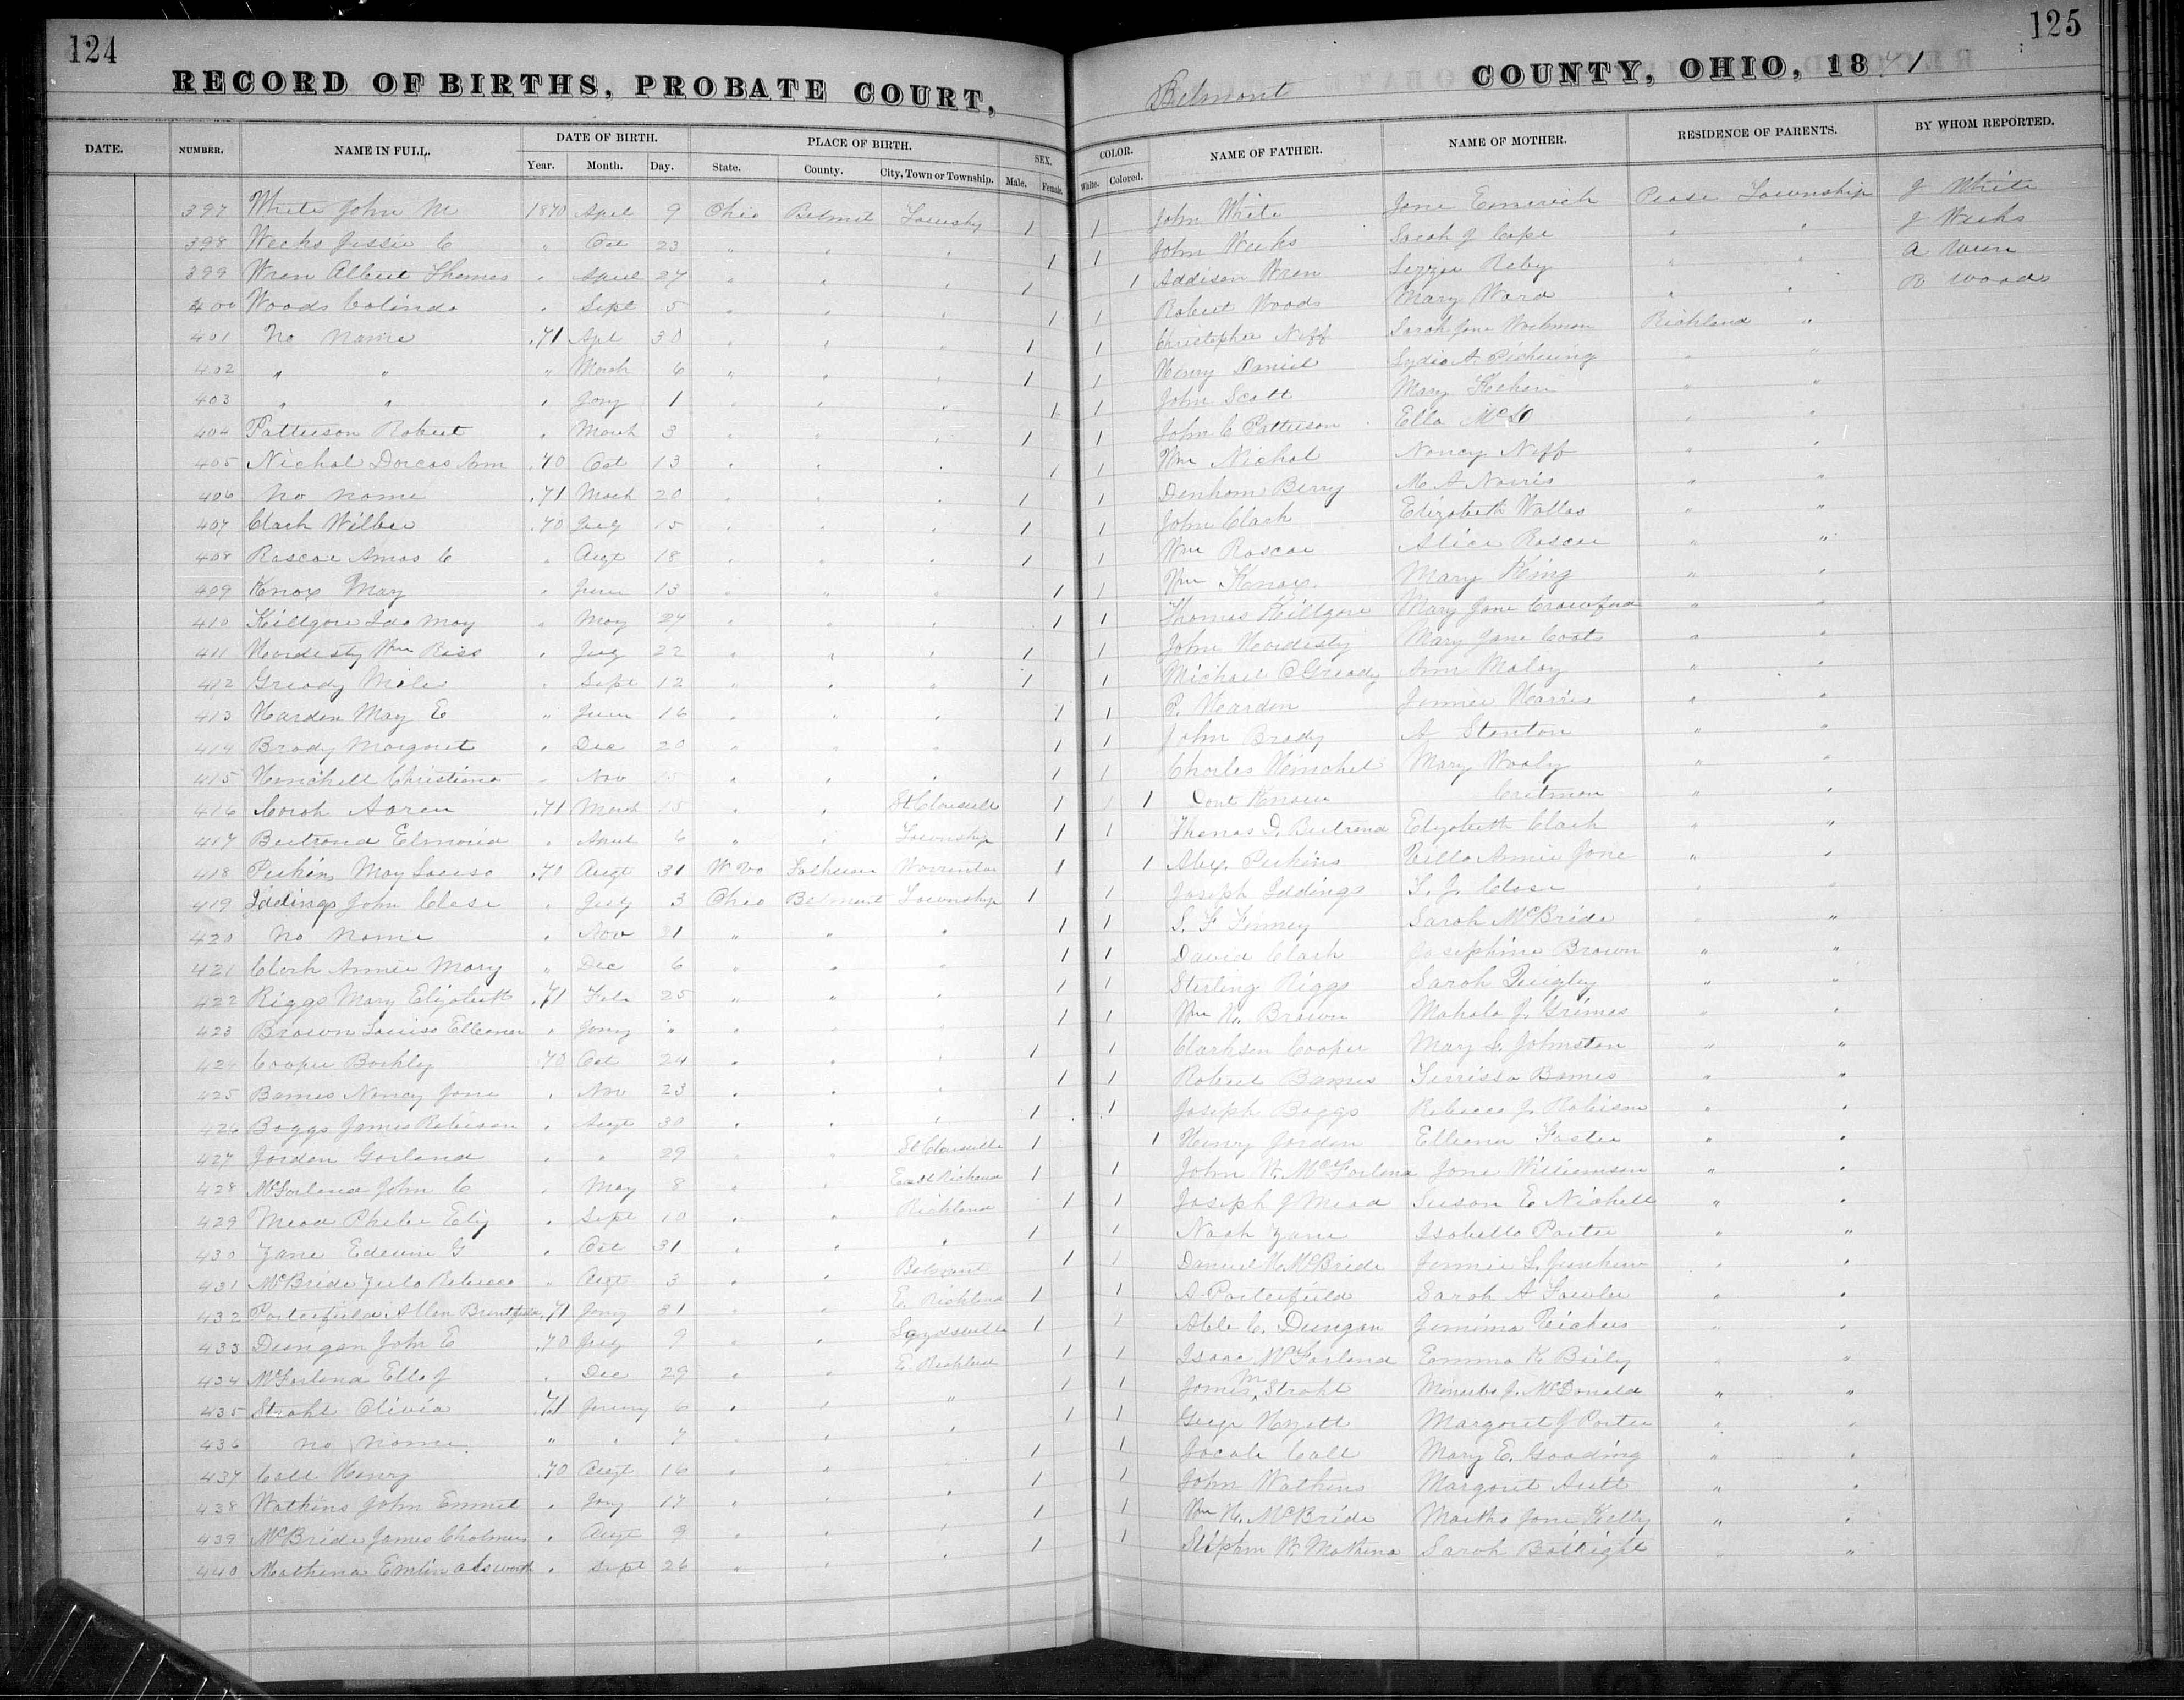 124
RECORD OF BIRTHS, PROBATE COURT,
Belmont COUNTY, OHIO, 1871
125
DATE. NUMBER. NAME IN FULL. DATE OF BIRTH. Year. Month. Day. PLACE OF BIRTH. State. County. City, Town or Township. SEX. Male. Female. COLOR. White. Colored. NAME OF FATHER. NAME OF MOTHER. RESIDENCE OF PARENTS. BY WHOM REPORTED.
397 White John M 1870 Apl 9 Ohio Belmont Township 1 1 John White Jane Emerich Pease Township J White
398 Weeks Jessie C " Oct 23 " " " 1 1 John Weeks Sarah J Cope " " J Weeks
399 Wren Albert Thomas " April 27 " " " 1 1 Addison Wren Lizzie Roby " " A Wren
400 Woods Colinda " Sept 5 " " " 1 1 Robert Woods Mary Ward " " R Woods
401 No name .71 Apl 30 " " " 1 1 Christopher Neff Sarah Jane Workman Richland "
402 " " " March 6 " " " 1 1 Henry Daniel Lydia A. Pickering " "
403 " " " Jany 1 " " " 1 1 John Scott Mary " "
404 Patterson Robert " March 3 " " " 1 1 John C Patterson Ella " "
405 Nichol Dorcas Ann .70 Oct 13 " " " 1 1 Wm Nichol Nancy Neff " "
406 No name .71 March 20 " " " 1 1 Denham Berry M A Norris " "
407 Clark Wilber .70 July 15 " " " 1 1 John Clark Elizabeth Wallas " "
408 Roscoe Amos C " Augt 18 " " " 1 1 Wm Roscoe Alice Roscoe " "
409 Knox May " June 13 " " " 1 1 Wm Knox Mary King " "
410 Killgore Ida May " May 27 " " " 1 1 Thomas Killgore Mary Jane Crawford " "
411 Hardesty Wm Ross " July 22 " " " 1 1 John Hardesty Mary Jane Coats " "
412 Gready Miles " Sept 12 " " " 1 1 Michael O Gready Ann Maloy " "
413 Harden May E " June 16 " " " 1 1 P. Harden Jennie Harris " "
414 Brady Margaret " Dec 20 " " " 1 1 John Brady A Stanton " "
415 Henchell Christiana " Nov 25 " " " 1 1 Charles Henchel Mary Wooly " "
416 Aaren .71 March 15 " " St Clairsville 1 1 Dont Know " "
417 Bertrand Elmoria " April 6 " " Township 1 1 Thomas D. Bertrand Elizabeth Clark " "
418 Perkins May Louisa .70 Augt 31 W Va Warrenton 1 1 Alex. Perkins Annie Jane " "
419 Iddings John Close " July 3 Ohio Belmont Township 1 1 Joseph Iddings L. J. Close " "
420 No name " Nov 21 " " " 1 1 S. F Finney Sarah McBride " "
421 Clark Annie Mary " Dec 6 " " " 1 1 David Clark Josephine Brown " "
422 Riggs Mary Elizabeth .71 Feb 25 " " " 1 1 Sterling Riggs Sarah Quigley " "
423 Brown Louisa Elleanor " Jany " " " " 1 1 Wm H. Brown Mahala J. Grimes " "
424 Cooper Barkley .70 Oct 24 " " " 1 1 Clarkson Cooper Mary S. Johnston " "
425 Barnes Nancy Jane " Nov 23 " " " 1 1 Robert Barnes Terrissa Barnes " "
426 Boggs James Robinson " Augt 30 " " " 1 1 Joseph Boggs Rebecca J. Robison " "
427 Jordan Garland " " 29 " " St Clairsville 1 1 Henry Jordan Elleanor Foster " "
428 McFarland John C " May 8 " " East Richland 1 1 John W. McFarland Jane Williamson " "
429 Mead Phebe Eliz " Sept 10 " " Richland 1 1 Joseph J Mead Susan E Nichell " "
430 Zane Edwin G " Oct 31 " " " 1 1 Noah Zane Isabella Porter " "
431 McBride Rebecca " Augt 3 " " Belmont 1 1 Daniel H. McBride Jennie L. Junkins " "
432 Porterfield Allen .71 Jany 31 " " E. Richland 1 1 A Porterfield Sarah A Fowler " "
433 Dungan John E .70 July 9 " " Loydsville 1 1 Able C. Dungan Jemima Vickers " "
434 McFarland Ella J " Dec 29 " " E. Richland 1 1 Isaac McFarland Emma K. Baily " "
435 Straht Olivia .71 January 6 " " " 1 1 James M Straht Minerba J. McDonald " "
436 no name " " 7 " " " 1 1 George Hyett Margaret J Porter " "
437 Call Henry .70 Augt 16 " " 1 1 Jacob Call Mary E. Gooding " "
438 Watkins John Emmet " Jany 17 " " " 1 1 John Watkins Margaret Ault " "
439 McBride James Chalmers " Augt 9 " " " 1 1 Wm H. McBride Martha Jane Kelly " "
440 Mathena Emlin " Sept 26 " " " 1 1 Stephen W. Mathena Sarah Boltright " "